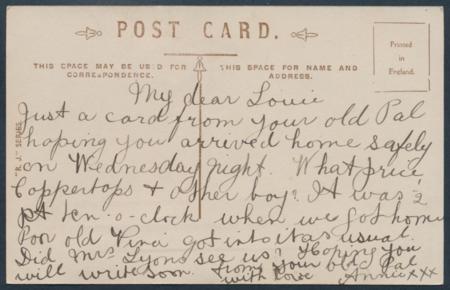 POST CARD.
THIS SPACE MAY BE USED FOR
CORRESPONDENCE.
THIS SPACE FOR NAME AND
ADDRESS.
Printed
in
England.
"R. J." SERIES
My dear Louie
Just a card from your old Pal
hoping you arrived home safely
on Wednesday night. What price
Coppertops & other boy? It was
pt ten-o-clock when we got home
Poor old got into it as usual.
Did Mrs Lyons see us? Hoping you
will write soon. From your old Pal
with love Annie xxx